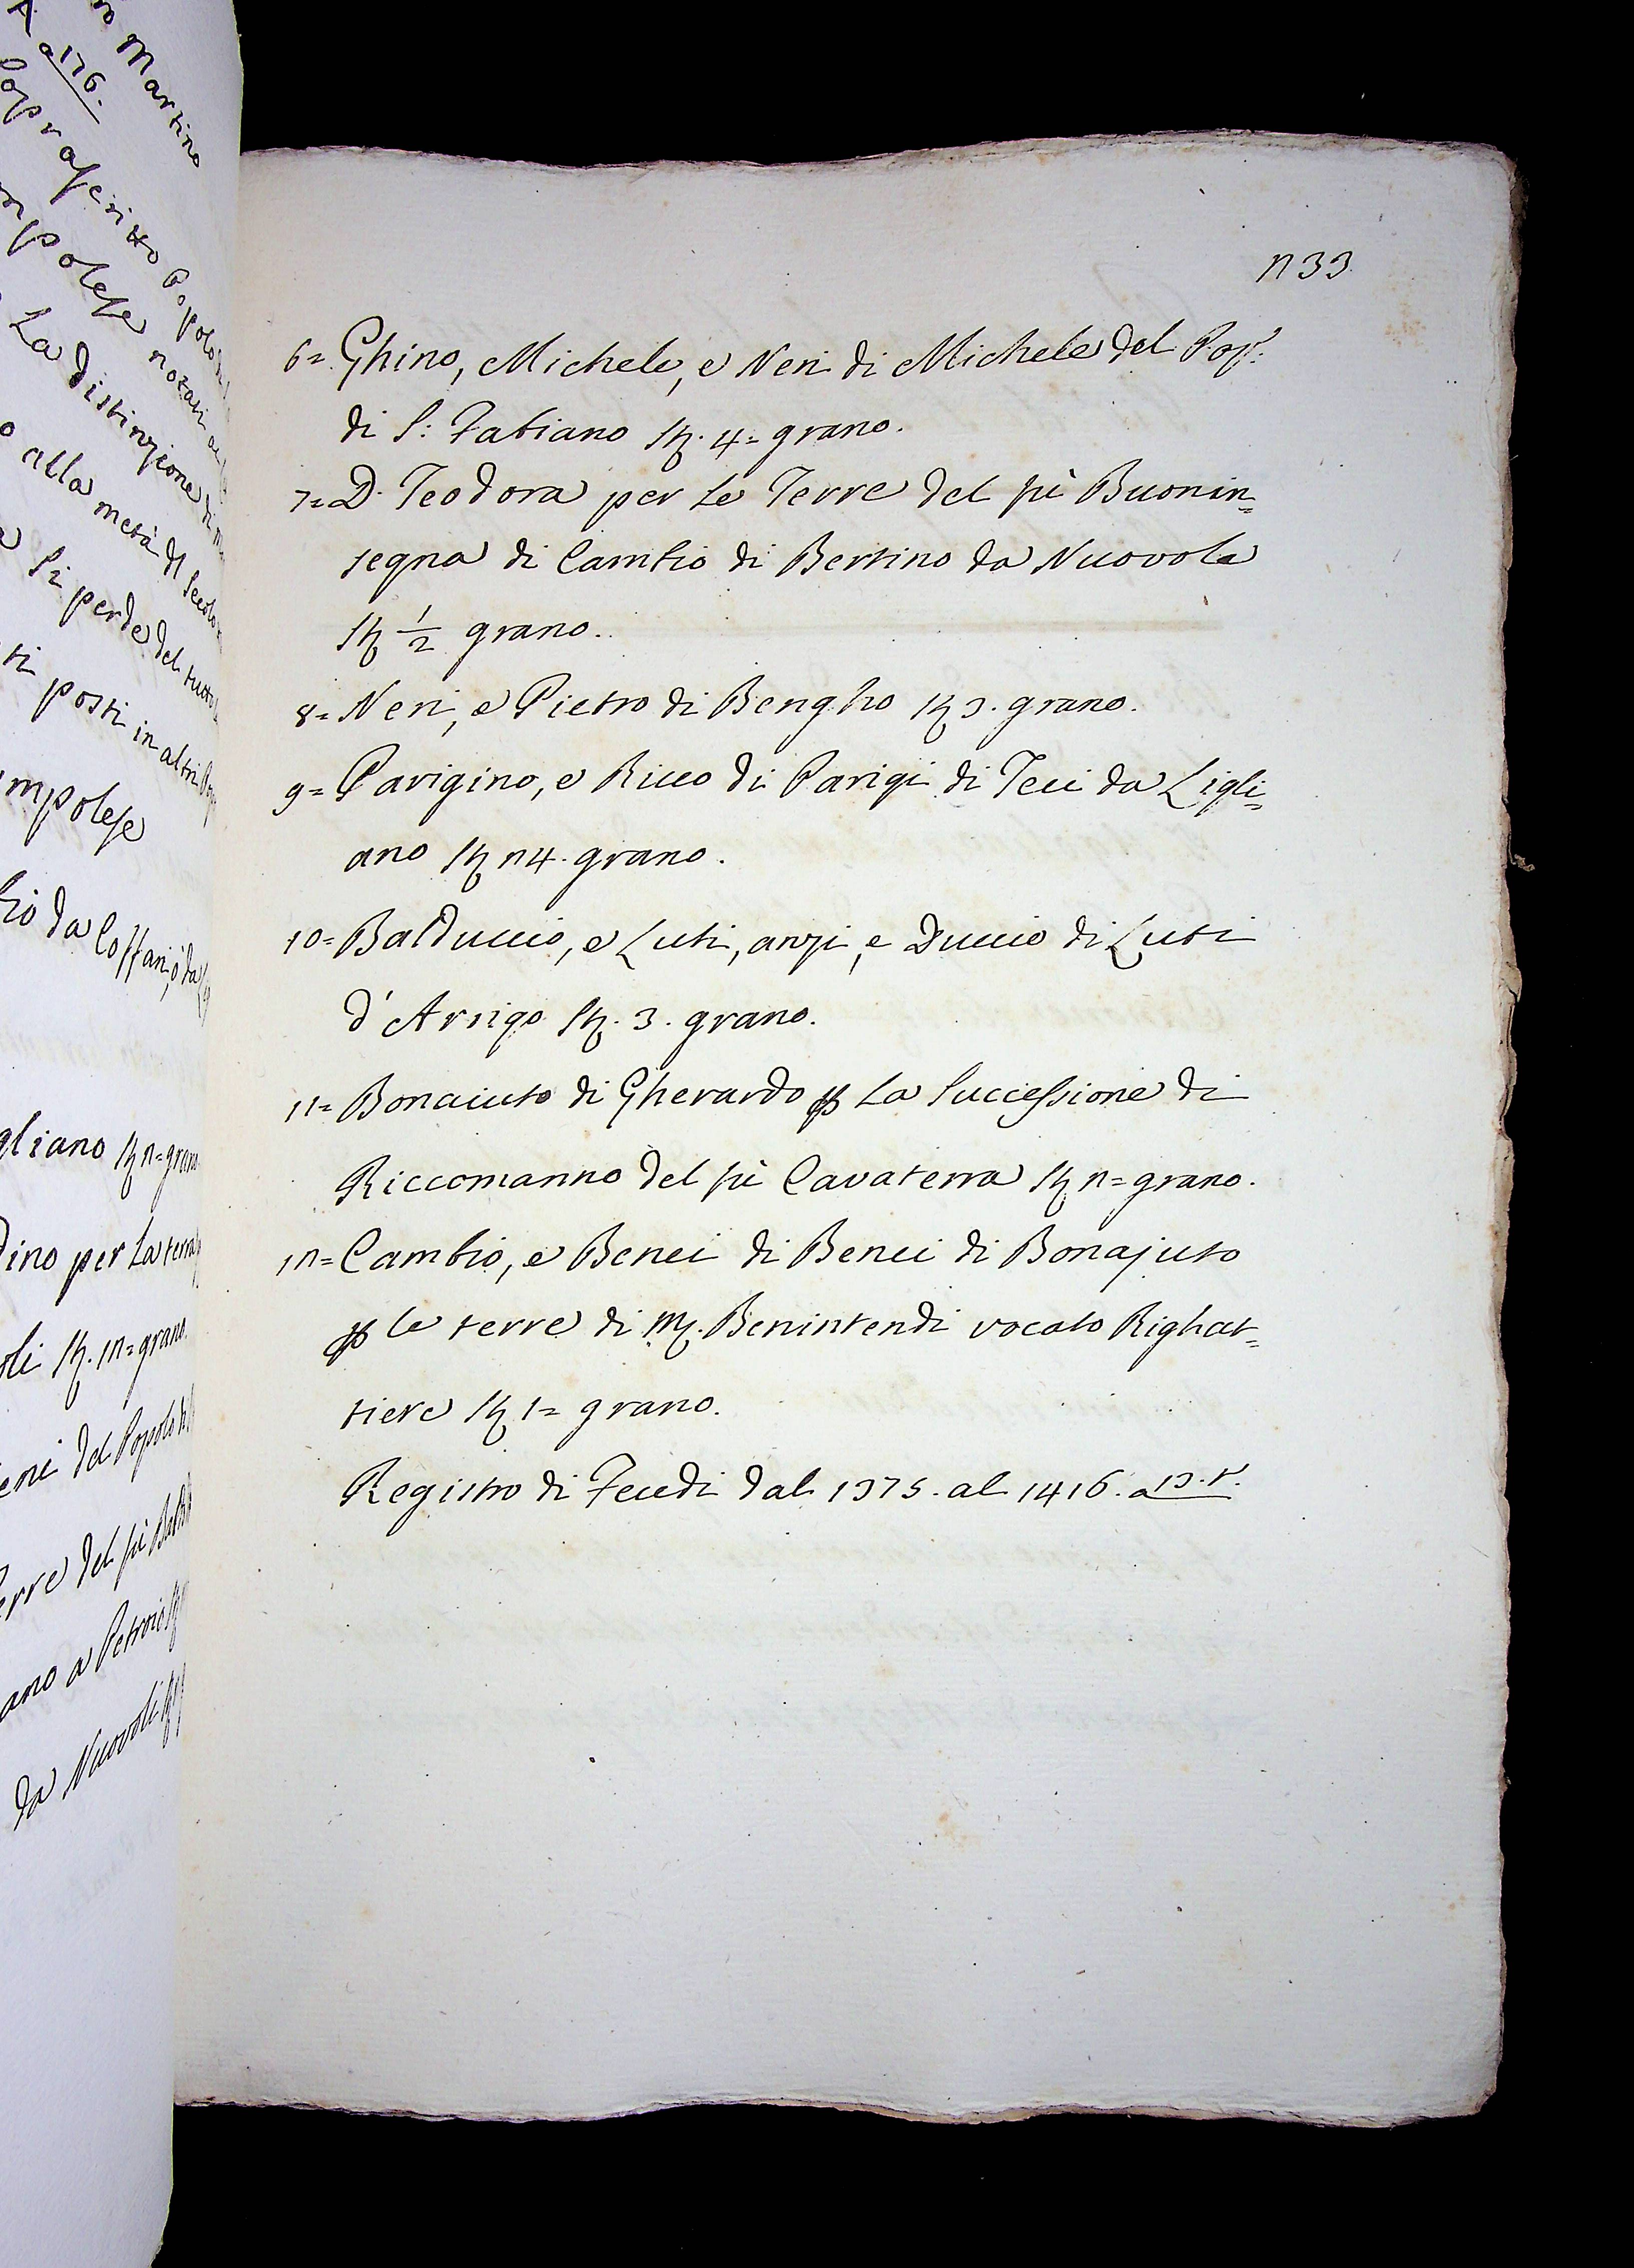 A
ro Martino
a 176.
soprascritto Popolo
mpolese notati
La distinzione di
o alla metà dl Secolo
a si perde del tutto
ti posti in altri
mpolese
gliano Sta 2= grano
dino per La terra
oli Sta. 12= grano.
eni del Popolo di
erre del fù
ano a Petroio
da Nuovoli
233.
6= Ghino, Michele, e Neri di Michele del Pop:
di S: Fabiano Sta. 4= grano.
7= D. Teodora per Le Terre del fù Buonin=
segna di Cambio di Bertino da Nuovole
Sta 1/2 grano.
8= Neri, e Pietro di Bengho Sta 3. grano.
9= Parigino, e Ricco di Parigi di Teci da Ligli=
ano Sta 24. grano.
10= Balduccio, e Luti, anzi, e Duccio di Luti
d'Arrigo Sta. 3. grano.
11= Bonaiuto di Gherardo p La Successione di
Riccomanno del fù Cavaterra Sta 2= grano.
12= Cambio, e Benci di Benci di Bonajuto
p le terre di M. Benintendi vocato Righat=
tiere Sta 1= grano.
Registro di Feudi dal 1375. al 1416. a 13. t.